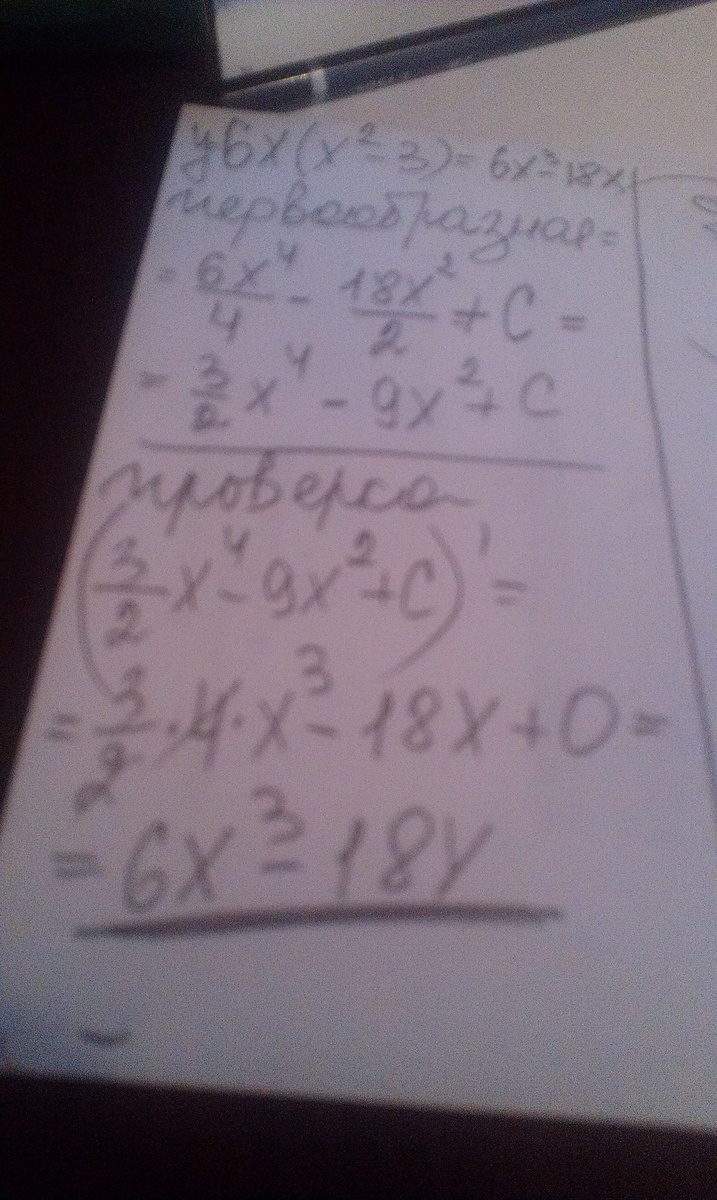 y6x(x² - 3) = 6x³ - 18x
первообразная =
= 6x⁴/4 - 18x²/2 + C =
= 3/2 x⁴ - 9x² + C
проверка
(3/2 x⁴ - 9x² + C)' =
= 3/2 · 4 · x³ - 18x + 0 =
= 6x³ - 18x